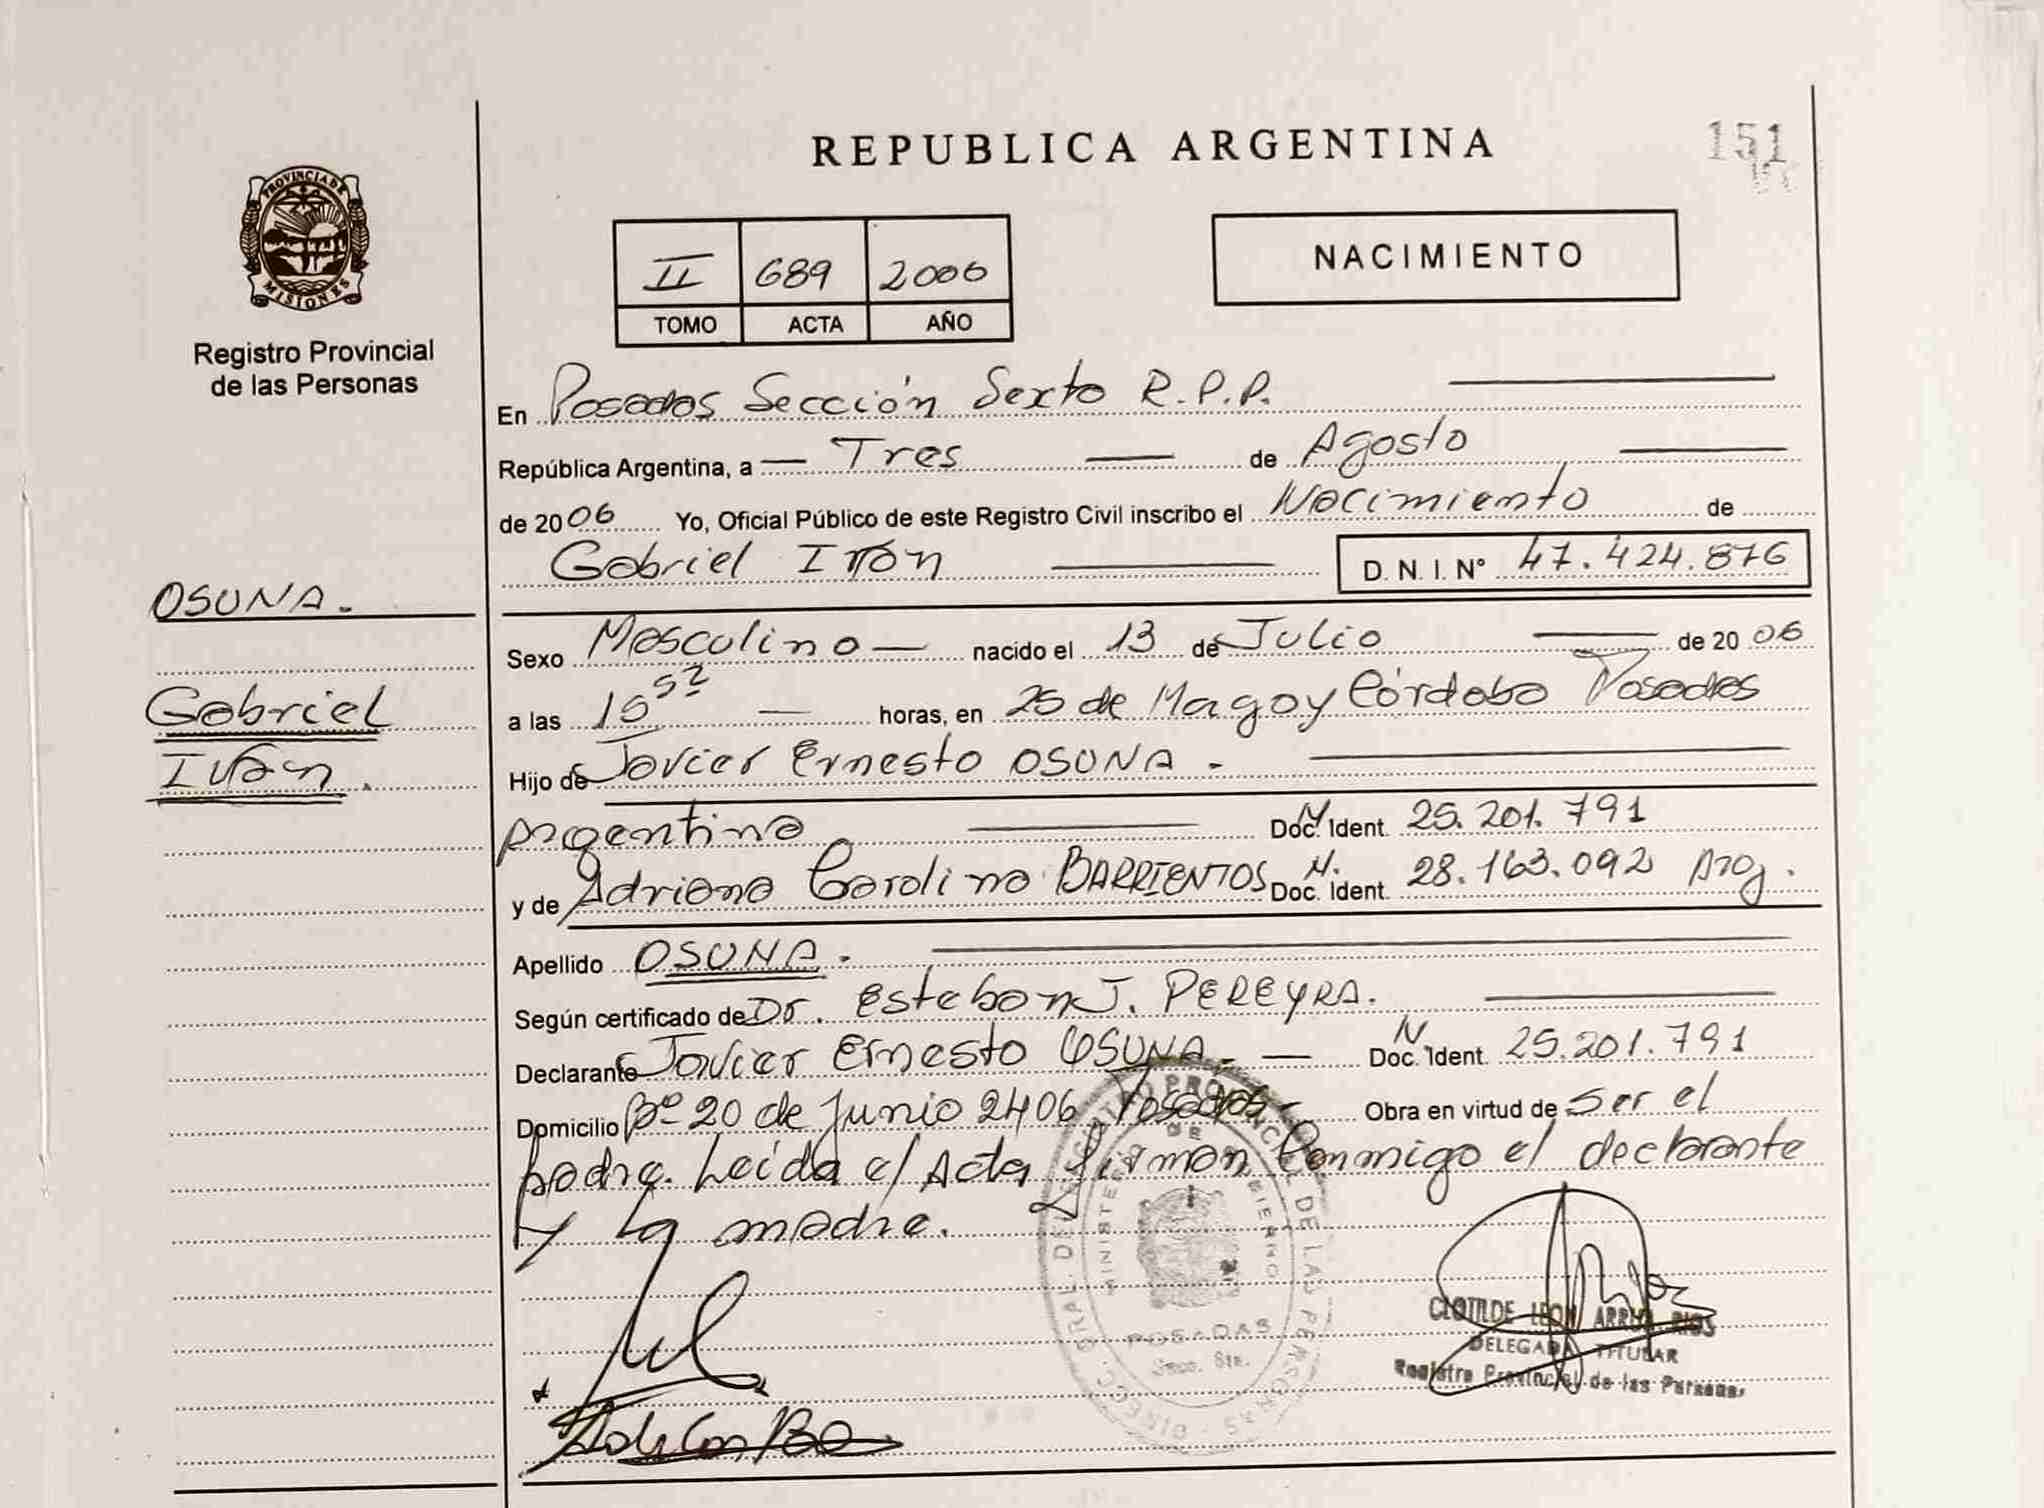 REPUBLICA ARGENTINA
151
PROVINCIA DE MISIONES
Registro Provincial
de las Personas
II 689 2006
TOMO ACTA AÑO
NACIMIENTO
En Posadas Sección Sexta R.P.P.
República Argentina, a Tres de Agosto
de 2006 Yo, Oficial Público de este Registro Civil inscribo el Nacimiento de
Gabriel Iván D. N. I. N° 47.424.876
OSUNA.
Gabriel
Iván.
Sexo Masculino nacido el 13 de Julio de 2006
a las 15 52 horas, en 25 de Mayo y Córdoba Posadas
Hijo de Javier Ernesto OSUNA.
Argentino Doc. Ident. N 25.201.791
y de Adriana Carolina BARRIENTOS Doc. Ident. N. 28.163.092 Arg.
Apellido OSUNA.
Según certificado de Dr. Esteban J. PEREYRA.
Declarante Javier Ernesto OSUNA. Doc. Ident. N 25.201.791
Domicilio Bº 20 de Junio 2406 Posadas Obra en virtud de Ser el
padre. Leída el Acta Firman Conmigo el declarante
y la madre.
MINISTERIO DE GOBIERNO
POSADAS
Secc. 6ta.
CLOTILDE LEON ARRUA RIOS
DELEGADA TITULAR
Registro Provincial de las Personas